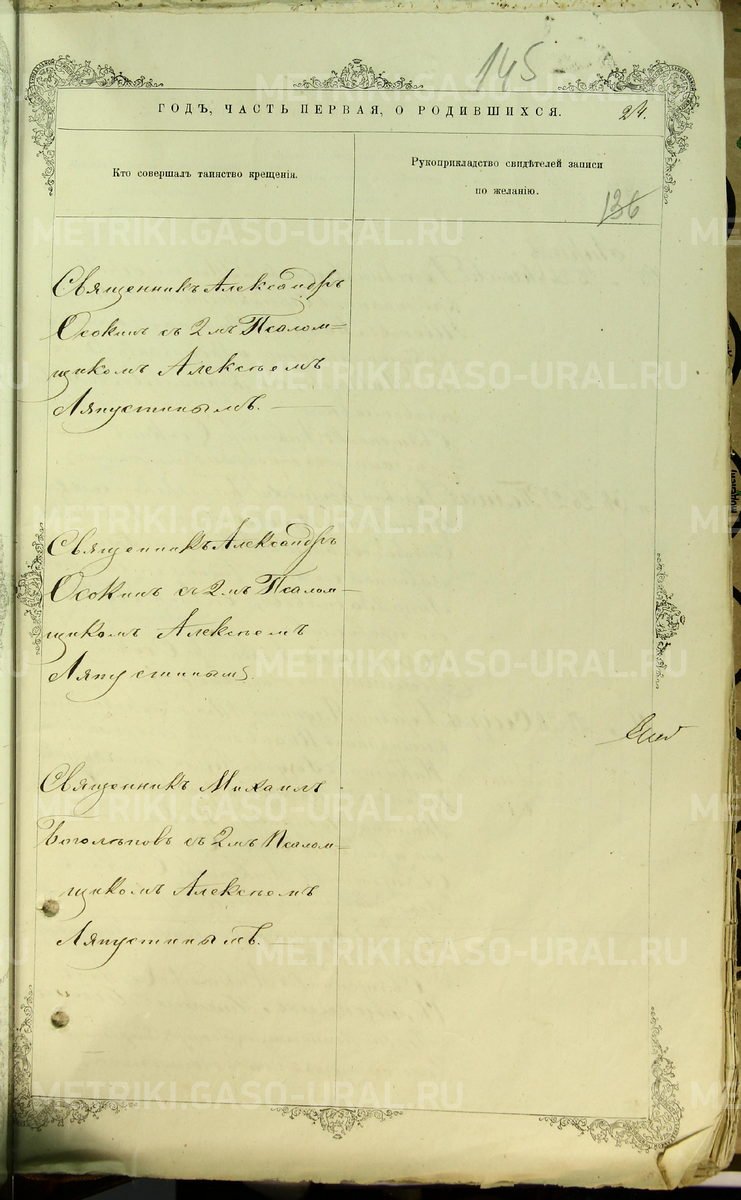 145
ГОДЪ, ЧАСТЬ ПЕРВАЯ, О РОДИВШИХСЯ.
24.
Кто совершалъ таинство крещенія.
Рукоприкладство свидѣтелей записи
по желанію.
136
Священникъ Александръ
Осокинъ съ 2мъ Псалом-
щикомъ Алексѣемъ
Ляпустинымъ.
Священникъ Александръ
Осокинъ съ 2мъ Псалом-
щикомъ Алексѣемъ
Ляпустинымъ.
Священникъ Михаилъ
Боголѣповъ съ 2мъ Псалом-
щикомъ Алексѣемъ
Ляпустинымъ.
METRIKI.GASO-URAL.RU